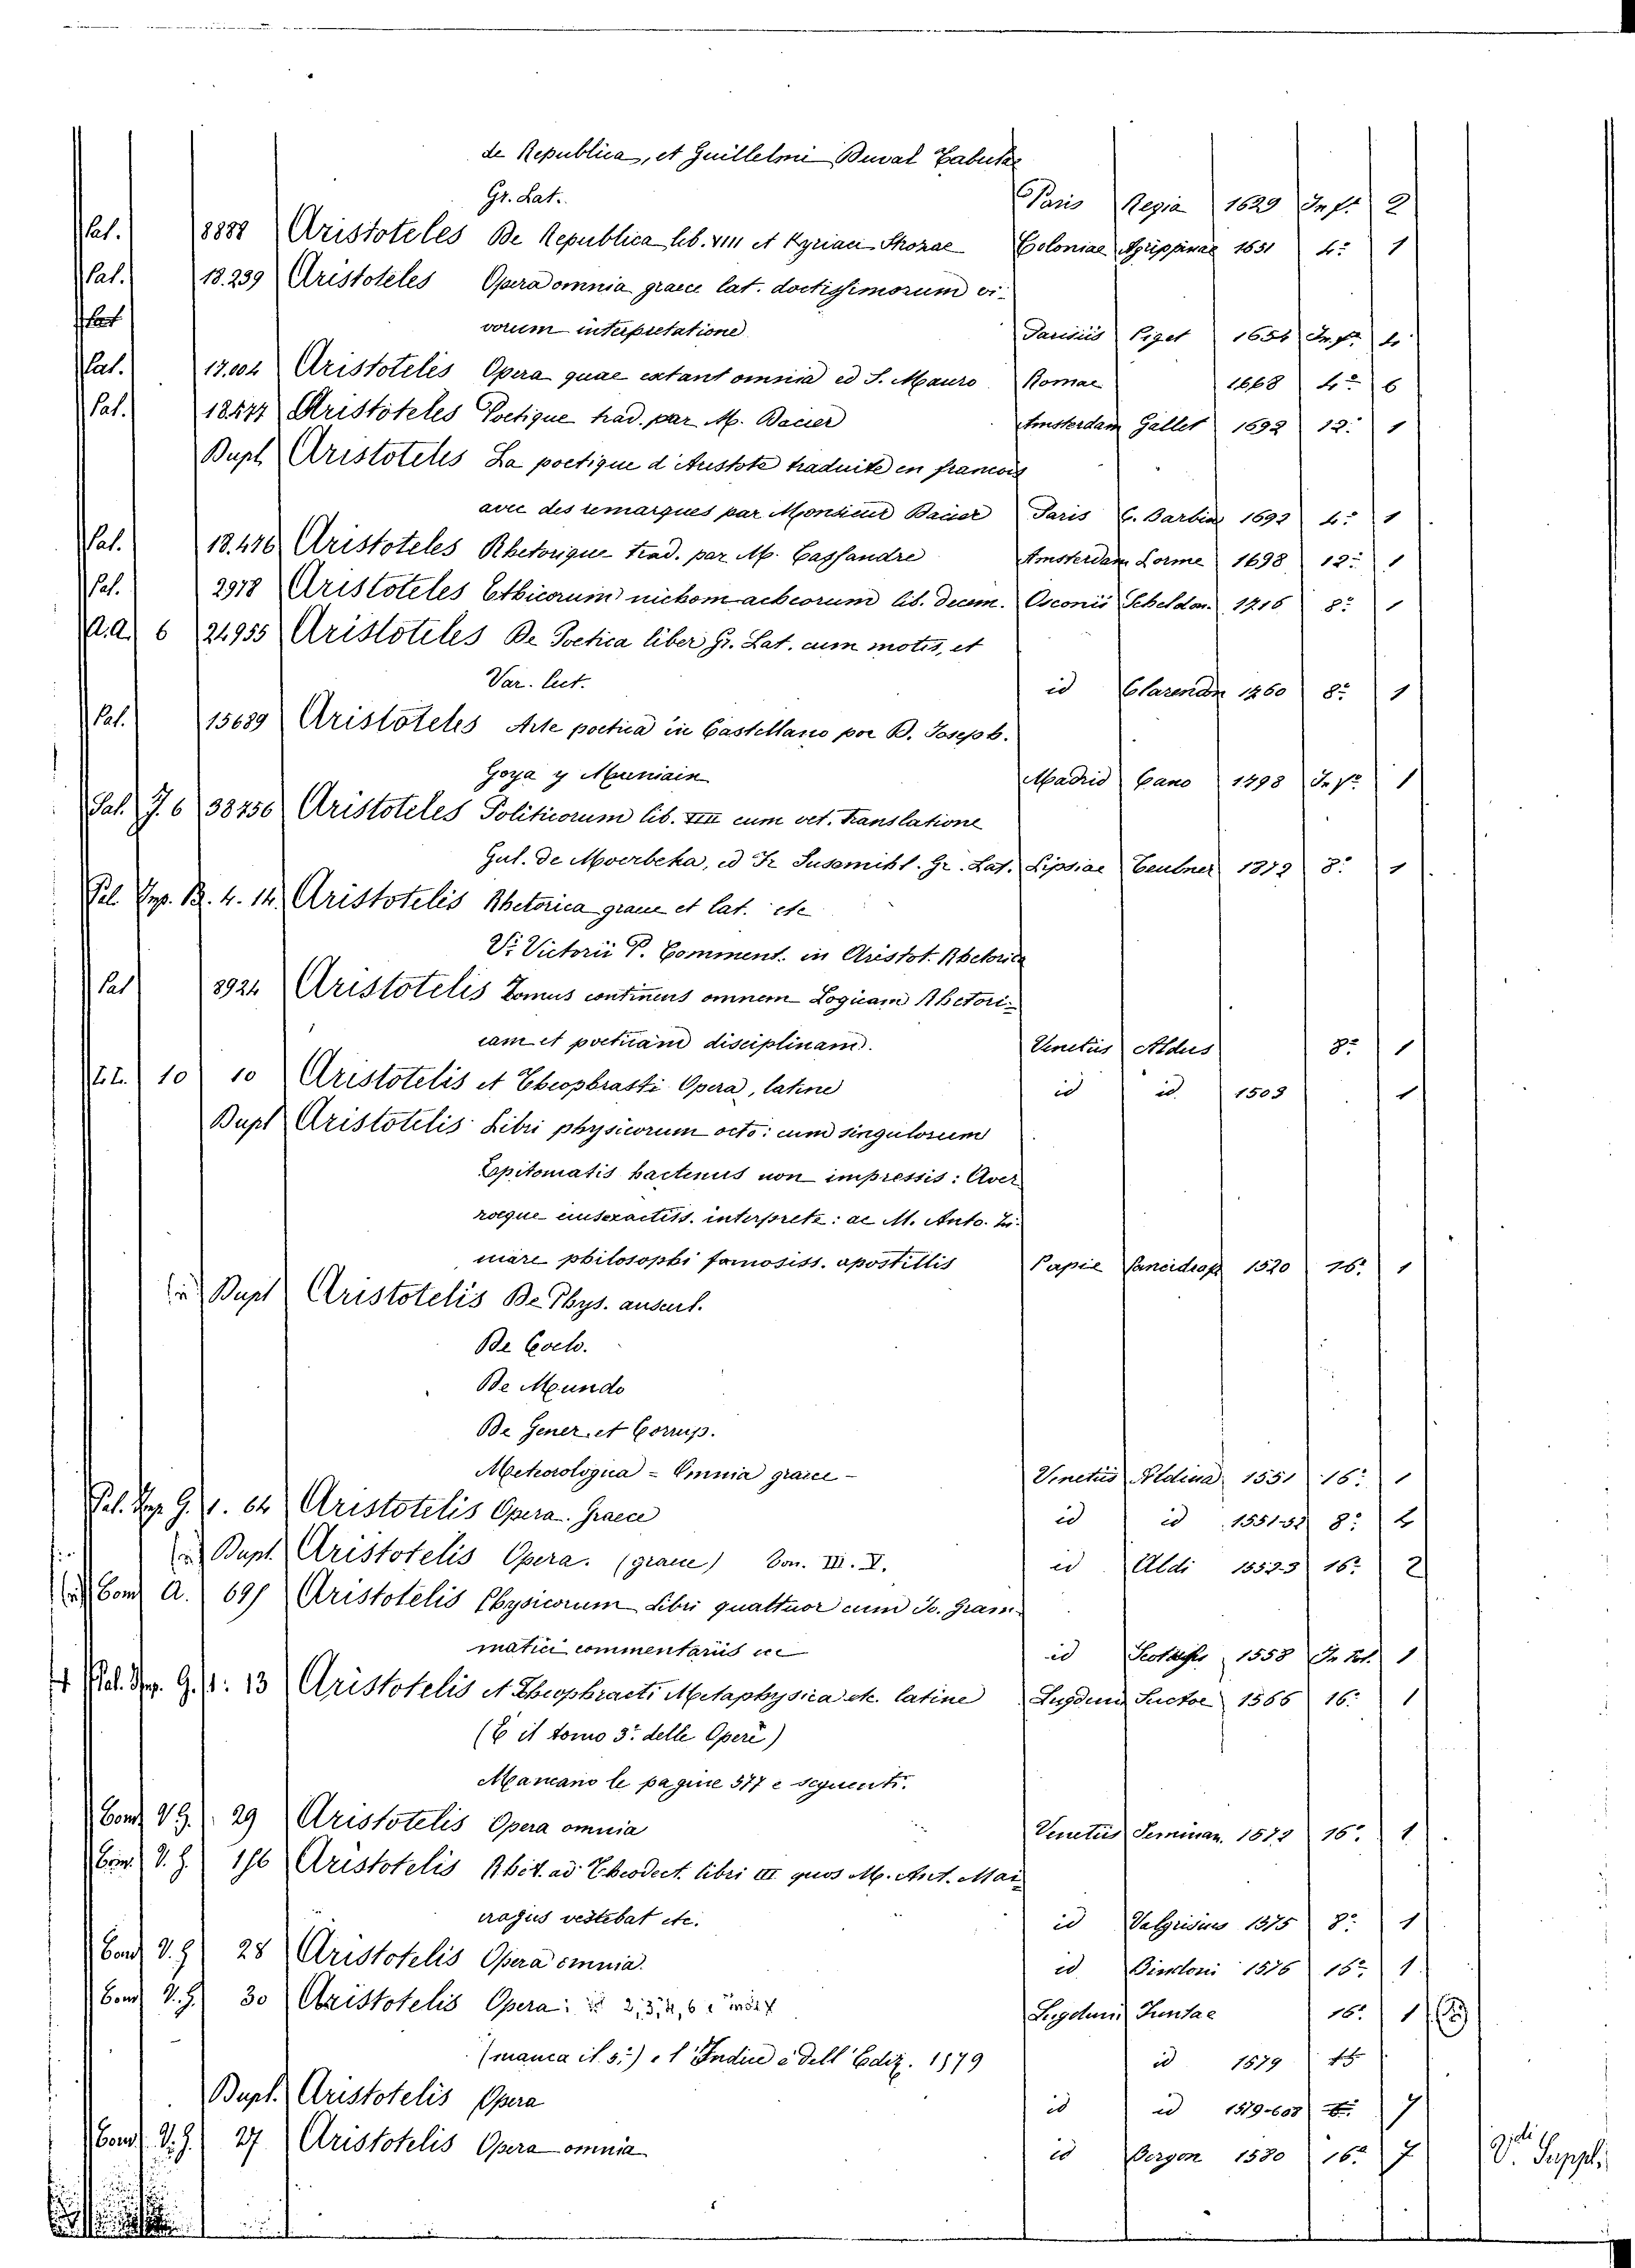 de Republica, et Guillelmi Duval Tabulae
Gr. Lat. Paris Regia 1629 In f.° 2
Pal. 8888 Aristoteles De Republica lib. VIII et Kyriaci Strozae Coloniae Agrippinae 1631 4° 1
Pal. 18.239 Aristoteles Opera omnia graece lat. doctissimorum vi-
rorum interpretatione Parisiis Piget 1654 In f.° 4
Pal. 17.004 Aristotelis Opera quae extant omnia ed S. Mauro Romae 1668 4° 6
Pal. 18477 Aristoteles Poetique trad. par M. Dacier Amsterdam Gallet 1692 12° 1
Dupl Aristoteles La poetique d'Aristote traduite en francois
avec des remarques par Monsieur Dacier Paris C. Barbin 1692 4° 1
Pal. 18.476 Aristoteles Rhetorique trad. par M. Cassandre Amsterdam Lorme 1698 12° 1
Pal. 2978 Aristoteles Ethicorum nichomacheorum lib. decem. Oxonii Scheldon. 1716 8° 1
A.A. 6 24955 Aristoteles De Poetica liber Gr. Lat. cum motis, et
Var. lect. id Clarendon 1760 8° 1
Pal. 15689 Aristoteles Arte poetica in Castellano por D. Joseph.
Goya y Muniain Madrid Cano 1798 In 4° 1
Pal. J. 6 38756 Aristoteles Politicorum lib. VIII cum vet. translatione
Gul. de Moerbeka, ed Fr Susemihl. Gr. Lat. Lipsiae Teubner 1872 8° 1
Pal. Imp. B. 4. 14. Aristotelis Rhetorica graece et lat. etc
V.i Victorii P. Comment. in Aristot. Rhetorica
Pal 8924 Aristotelis Tomus continens omnem Logicam Rhetori-
cam et poeticam disciplinam. Venetiis Aldus 8° 1
10 10 Aristotelis et Theophrasti Opera, latine id id. 1503 1
Dupl Aristotelis Libri physicorum octo: cum singulorum
Epitomatis hactenus non impressis: Aver
roeque interprete: ac M. Anto. Zi-
mare philosophi famosiss. apostillis Papie 1520 16° 1
Dupl Aristotelis De Phys. auscult.
De Coelo.
De Mundo
De Gener. et Corrup.
Meteorologica = Omnia graece - Venetiis Aldina 1551 16° 1
Pal. Imp. G. 1. 64 Aristotelis Opera. Graece id id 1551-52 8°
Dupl. Aristotelis Opera. (graece) Tom. III. V. id Aldi 1552-3 16° 2
Com. A. 691 Aristotelis Physicorum Libri quattuor cum Io. Gram-
matici commentariis etc id 1558 In fol. 1
Pal. Imp. G. 1: 13 Aristotelis et Theophrasti Metaphysica etc. latine Lugduni 1566 16° 1
(È il tomo 3° delle Opere)
Mancano le pagine 577 e seguenti.
Com. V. G. 29 Aristotelis Opera omnia Venetiis Seminan. 1572 16° 1
Com. V. G. 116 Aristotelis Rhet. ad Theodect. libri III quos M. Ant. Mai-
oragius vertebat etc. id Valgrisius 1575 8° 1
Com. V. G. 28 Aristotelis Opera omnia. id. Bindoni 1576 16° 1
Com V. G. 30 Aristotelis Opera: 2, 3, 4, 6 Lugduni Juntae 16° 1
(manca il 5°) e l'Indice è dell'Ediz. 1579 id 1579
Dupl. Aristotelis Opera id id 1579-608 7
Com V. G. 27 Aristotelis Opera omnia id Bergon 1580 16° 7
V. Suppl.